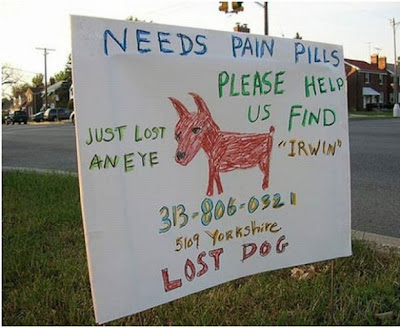 NEEDS PAIN PILLS
PLEASE HELP
US FIND
"IRWIN"
JUST LOST
AN EYE
313-806-0321
5109 YorKshire
LOST DOG